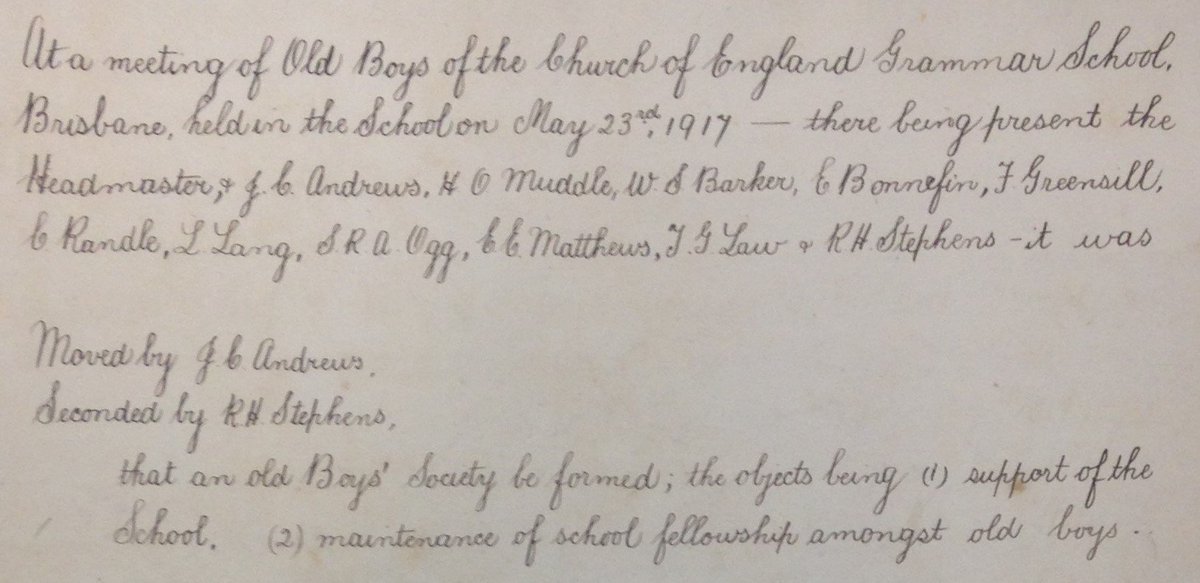 At a meeting of Old Boys of the Church of England Grammar School,
Brisbane, held in the School on May 23rd, 1917 — there being present the
Headmaster, & J. C. Andrews, H O Muddle, W. S Barker, E Bonnefin, F Greensill,
C Randle, L Lang, S R A Ogg, C C Matthews, T. G Law & R H. Stephens - it was
Moved by J C Andrews.
Seconded by R H Stephens,
that an old Boys' Society be formed; the objects being (1) support of the
School. (2) maintenance of school fellowship amongst old boys.